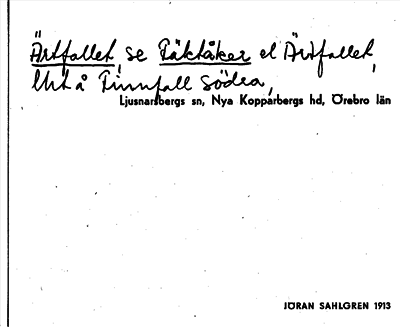 Ärtfallet, se Täktåker el Ärtfallet,
Utä Finnfall södra,
Ljusnarsbergs sn, Nya Kopparbergs hd, Örebro län
JÖRAN SAHLGREN 1913